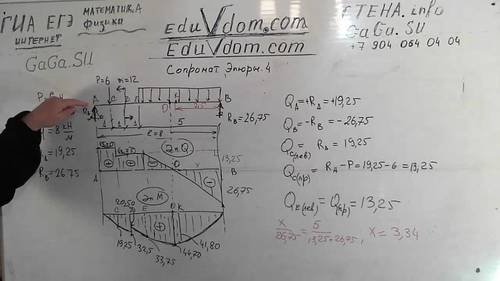 ГИА ЕГЭ МАТЕМАТИКА физики
ИНТЕРНЕТ
GaGa.SU
EduVdom.com
EduVdom.com
Сопромат Эпюры.4
СТЕНА.info
GaGa.SU
+7 904 064 04 04
P=6 m=12
B
R_B=26,75
5
ℓ=8
8 кН/м
=19,25
R_B=26,75
Эп Q
13,25
B
26,75
A
20,50
Эп M
C E D K
19,25 32,5 33,75 44,70 41,80
Q_A=+R_A=+19,25
Q_B=-R_B=-26,75
Q_C(лев)=R_A=19,25
Q_C(пр)=R_A-P=19,25-6=13,25
Q_E(лев)=Q_E(пр)=13,25
x/26,75=5/13,25+26,75, x=3,34